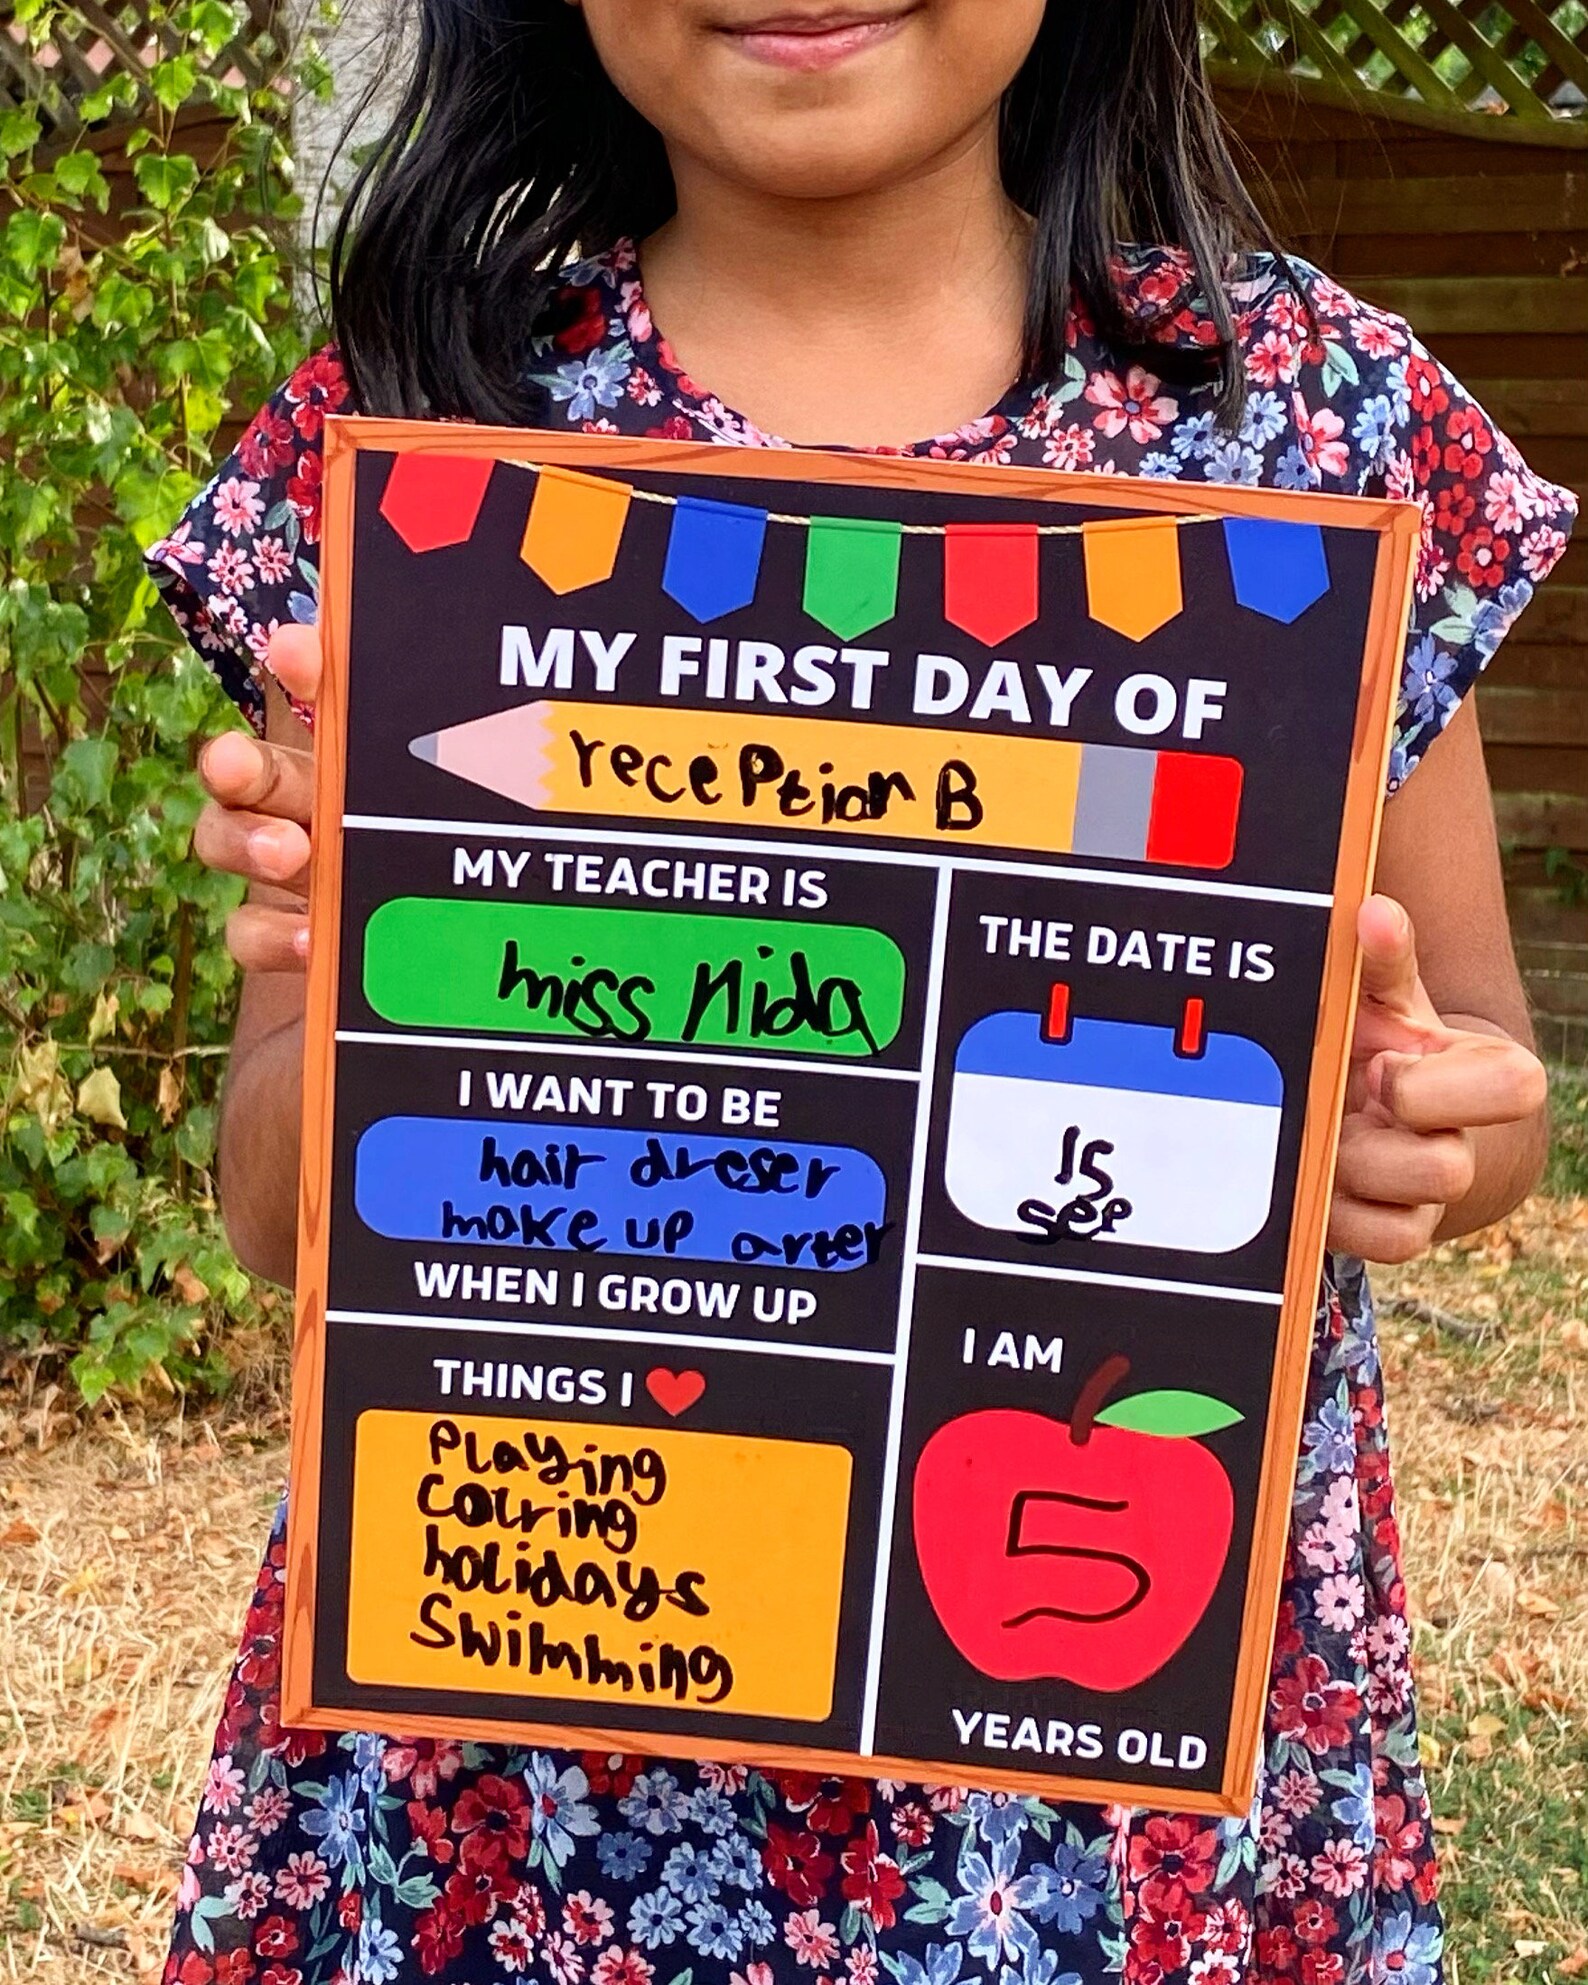 MY FIRST DAY OF
reception B
MY TEACHER IS
miss nida
I WANT TO BE
hair dreser
make up arter
WHEN I GROW UP
THINGS I
Playing
Colring
holidays
Swimming
THE DATE IS
15
sep
I AM
5
YEARS OLD